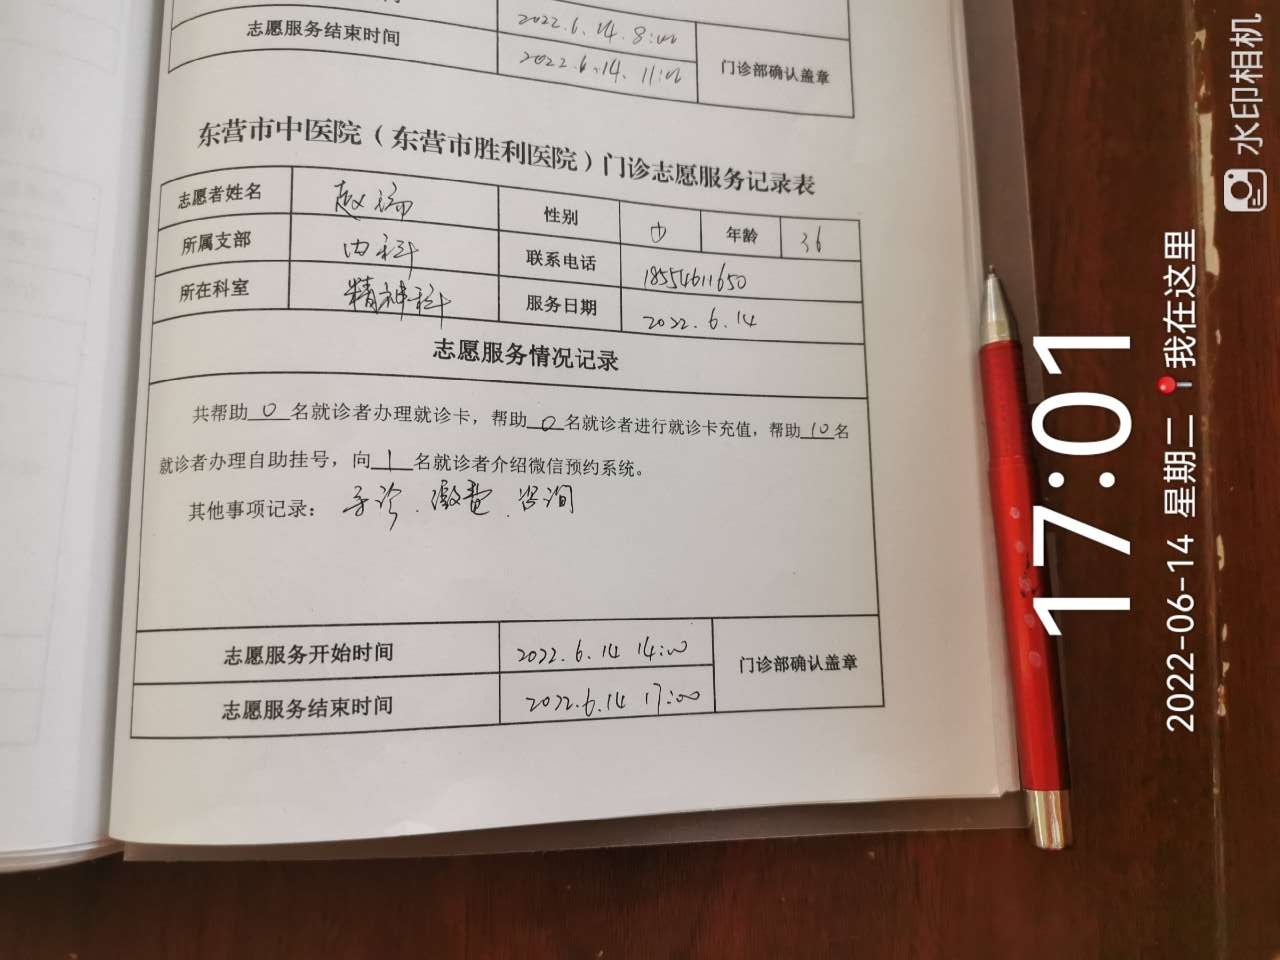 志愿服务结束时间
2022.6.14.8:00
2022.6.14.11:00
门诊部确认盖章
东营市中医院（东营市胜利医院）门诊志愿服务记录表
志愿者姓名 赵 性别 年龄 36
所属支部 内科 联系电话 18554611650
所在科室 精神科 服务日期 2022.6.14
志愿服务情况记录
共帮助0名就诊者办理就诊卡，帮助0名就诊者进行就诊卡充值，帮助10名
就诊者办理自助挂号，向1名就诊者介绍微信预约系统。
其他事项记录：导诊.缴费.咨询
志愿服务开始时间 2022.6.14 14:00 门诊部确认盖章
志愿服务结束时间 2022.6.14 17:00
17:01
2022-06-14 星期二 我在这里
水印相机